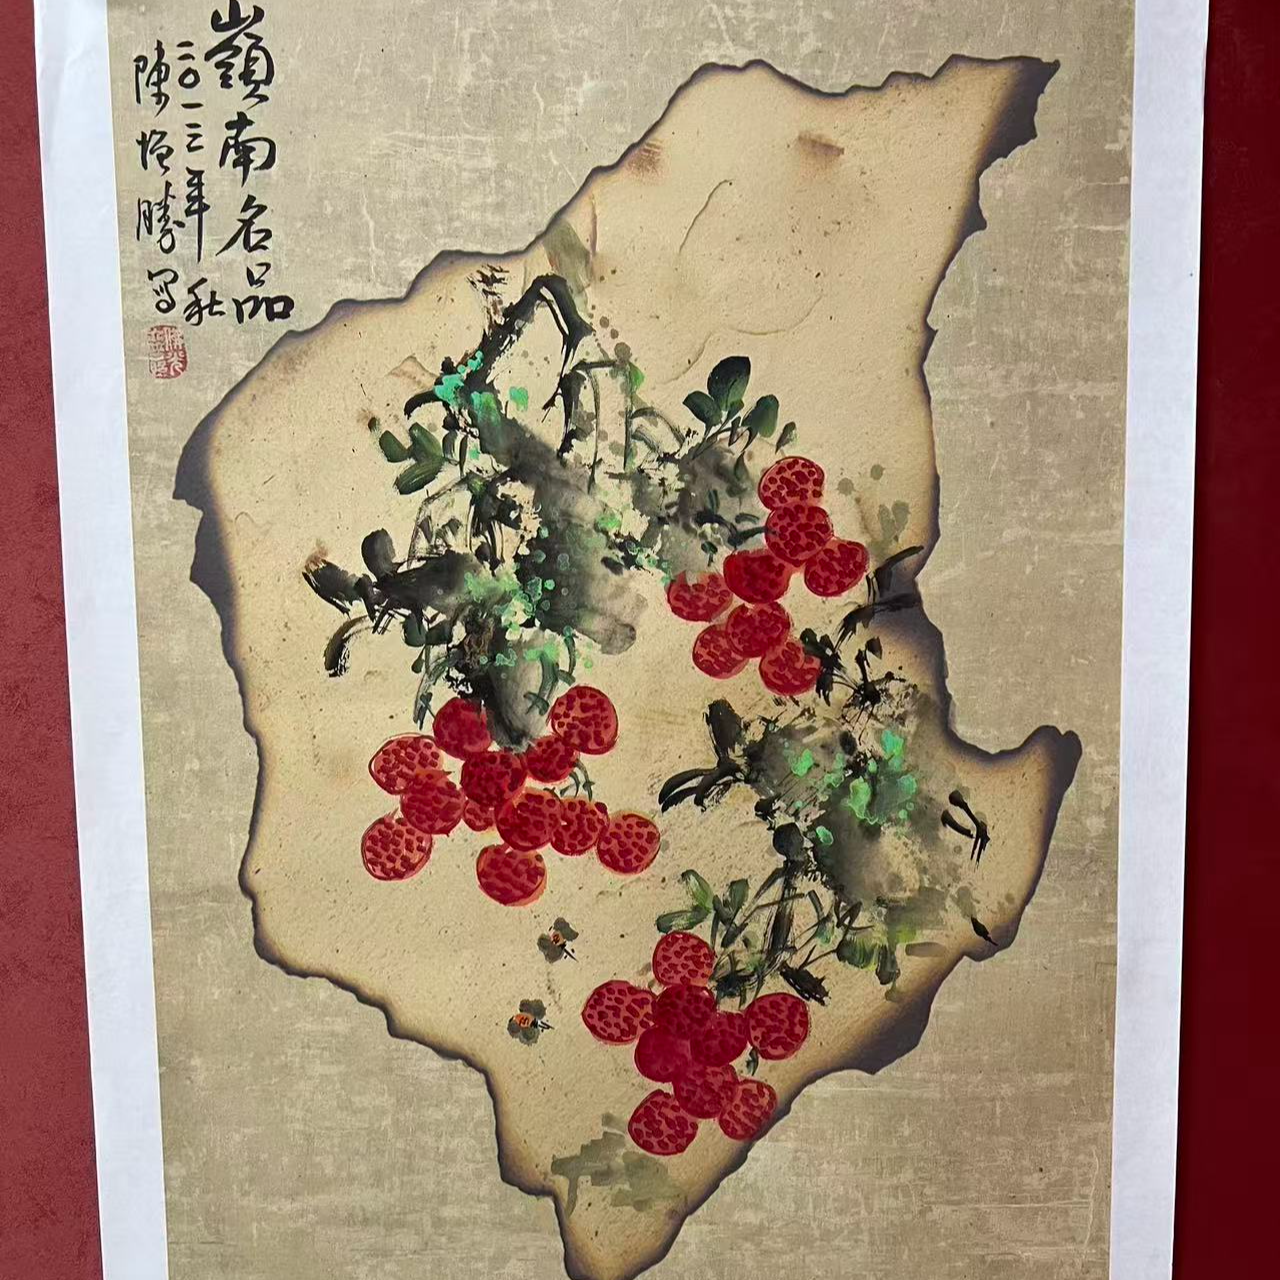 嶺南名品
二〇一三年秋
陳恒勝寫